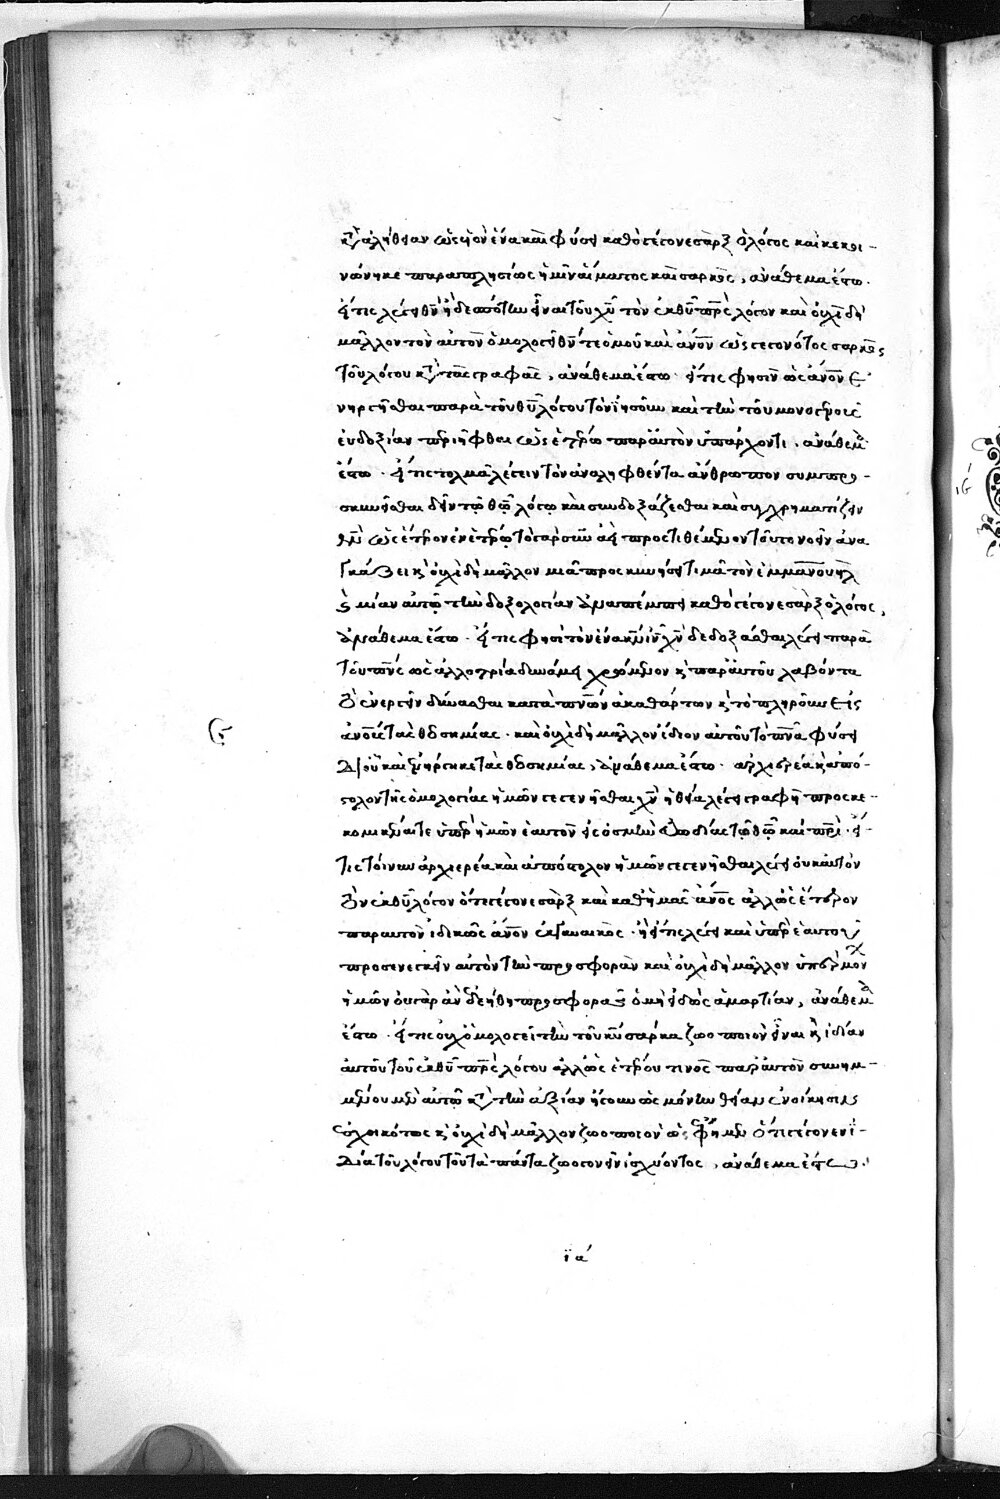 κατὰ ἀλήθειαν ὡς υἱὸν ἕνα καὶ φύσει καθὸ γέγονε σὰρξ ὁ λόγος καὶ κεκοι-
νώνηκε παραπλησίως ἡμῖν αἵματος καὶ σαρκὸς, ἀνάθεμα ἔστω.
εἴ τις λέγει θν ἢ δεσπότην εἶναι τοῦ χυ τὸν ἐκ θυ πρς λόγον καὶ οὐχὶ δὴ
μᾶλλον τὸν αὐτὸν ὁμολογεῖ θν τε ὁμοῦ καὶ ανον ὡς γεγονότος σαρκὸς
τοῦ λόγου κατὰ τὰς γραφὰς, ἀνάθεμα ἔστω. εἴ τις φησὶν ὡς ανον ἐ-
νηργῆσθαι παρὰ τοῦ θυ λόγου τὸν ἰησοῦν καὶ τὴν τοῦ μονογενοῦς
εὐδοξίαν περιῆφθαι ὡς ἑτέρω παρ' αὐτὸν ὑπάρχοντι, ἀνάθεμα
ἔστω. εἴ τις τολμᾶ λέγειν τὸν ἀναληφθέντα ἄνθρωπον συμπρο-
σκυνεῖσθαι δεῖν τῶ θω λόγω καὶ συνδοξάζεσθαι καὶ συγχρηματίζειν
θν ὡς ἕτερον ἐν ἑτέρω τὸ γὰρ σὺν ἀεὶ προστιθέμενον τοῦτο νοεῖν ἀνα
γκάζει κ οὐχὶ δὴ μᾶλλον μιᾶ προσκυνήσει τιμᾶ τὸν ἐμμανουὴλ
κ μίαν αὐτῶ τὴν δοξολογίαν ἀναπέμπει καθὸ γέγονε σὰρξ ὁ λόγος,
ἀνάθεμα ἔστω. εἴ τις φησὶ τὸν ἕνα κν ιν χν δεδοξάσθαι λέγει παρὰ
τοῦ πνς ὡς ἀλλοτρία δυνάμει χρώμενον κ παρ' αὐτοῦ λαβόντα
τὸ ἐνεργεῖν δύνασθαι κατὰ πνων ἀκαθάρτων κ τὸ πληροῦν εἰς
ανους τὰς θεοσημίας. καὶ οὐχὶ δὴ μᾶλλον ἴδιον αὐτοῦ τὸ πνα φύσει
δι' οὗ καὶ ἐνήργηκε τὰς θεοσημίας, ἀνάθεμα ἔστω. ἀρχιερέα κ ἀπό-
στολον τῆς ὁμολογίας ἡμῶν γεγενῆσθαι χν ἡ θεία λέγει γραφὴ προσκε-
κομικέναι τε ὑπὲρ ἡμῶν ἑαυτὸν εἰς ὀσμὴν εὐωδίας τῶ θω καὶ πρι. εἴ
τις τοίνυν ἀρχιερέα καὶ ἀπόστολον ἡμῶν γεγενῆσθαι λέγει οὐκ αὐτὸν
τὸν ἐκ θυ λόγον ὅτι γέγονε σὰρξ καὶ καθ' ἡμᾶς ανος ἀλλ' ὡς ἕτερον
παρ αυτὸν ἰδικῶς ανον ἐκ γυναικὸς. ἢ εἴ τις λέγει καὶ ὑπὲρ ἑαυτοῦ
προσενεγκεῖν αὐτὸν τὴν προσφορὰν καὶ οὐχὶ δὴ μᾶλλον ὑπὲρ μόνων
ἡμῶν οὐ γὰρ ἂν δεήθη προσφορᾶς ὁ μὴ εἰδὼς ἁμαρτίαν, ἀνάθεμα
ἔστω. εἴ τις οὐχ ὁμολογεῖ τὴν τοῦ κυ σάρκα ζωοποιὸν εἶναι κ ἰδίαν
αὐτοῦ τοῦ ἐκ θυ πρς λόγου ἀλλ' ὡς ἑτέρου τινὸς παρ' αὐτὸν συνημ-
μένου μὲν αὐτῶ κατὰ τὴν ἀξίαν ἤγουν ὡς μόνην θείαν ἐνοίκησιν
ἐσχηκότος κ οὐχὶ δὴ μᾶλλον ζωοποιὸν ὡς ἔφημεν ὅτι γέγονεν ἰ-
δία τοῦ λόγου τοῦ τὰ πάντα ζωογονεῖν ἰσχύοντος, ἀνάθεμα ἔστω.
ϊα´